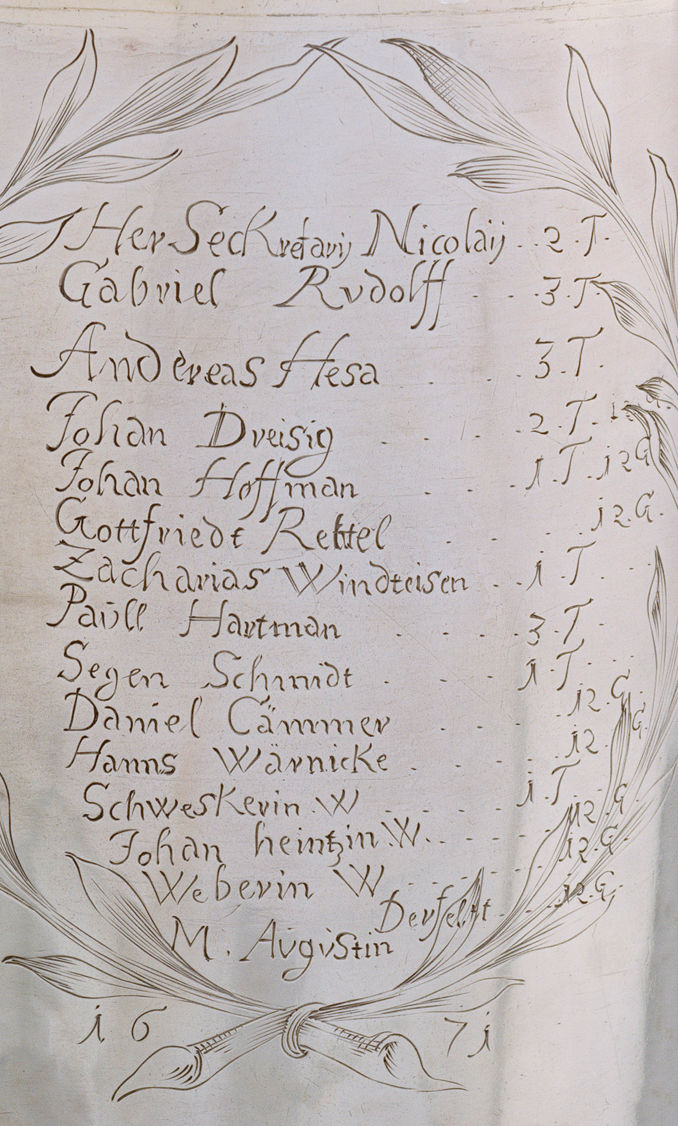 Her SecKretarij Nicolaij . . 2 . T .
Gabriel Rvdolff . . . 3 . T .
Andereas Hesa . . 3 . T .
Johan Dreisig . . . . 2 . T . 12 . G .
Johan Hoffman . . . 1 . T . 12 G
Gottfriedt . . . 12 . G .
Zacharias Windteisen . . 1 T .
Paull Hartman . . . . 3 . T .
Segen Schmidt . . . 1 T .
Daniel Cämmer . . . . 12 . G
Hanns Wärnicke . . . . 12 G
SchwesKerin . W . . . . 1 . T .
Johan heintzin . W . . . . 12 . G
Weberin W . . . . 12 . G .
M . Augustin . . 12 . G .
1671